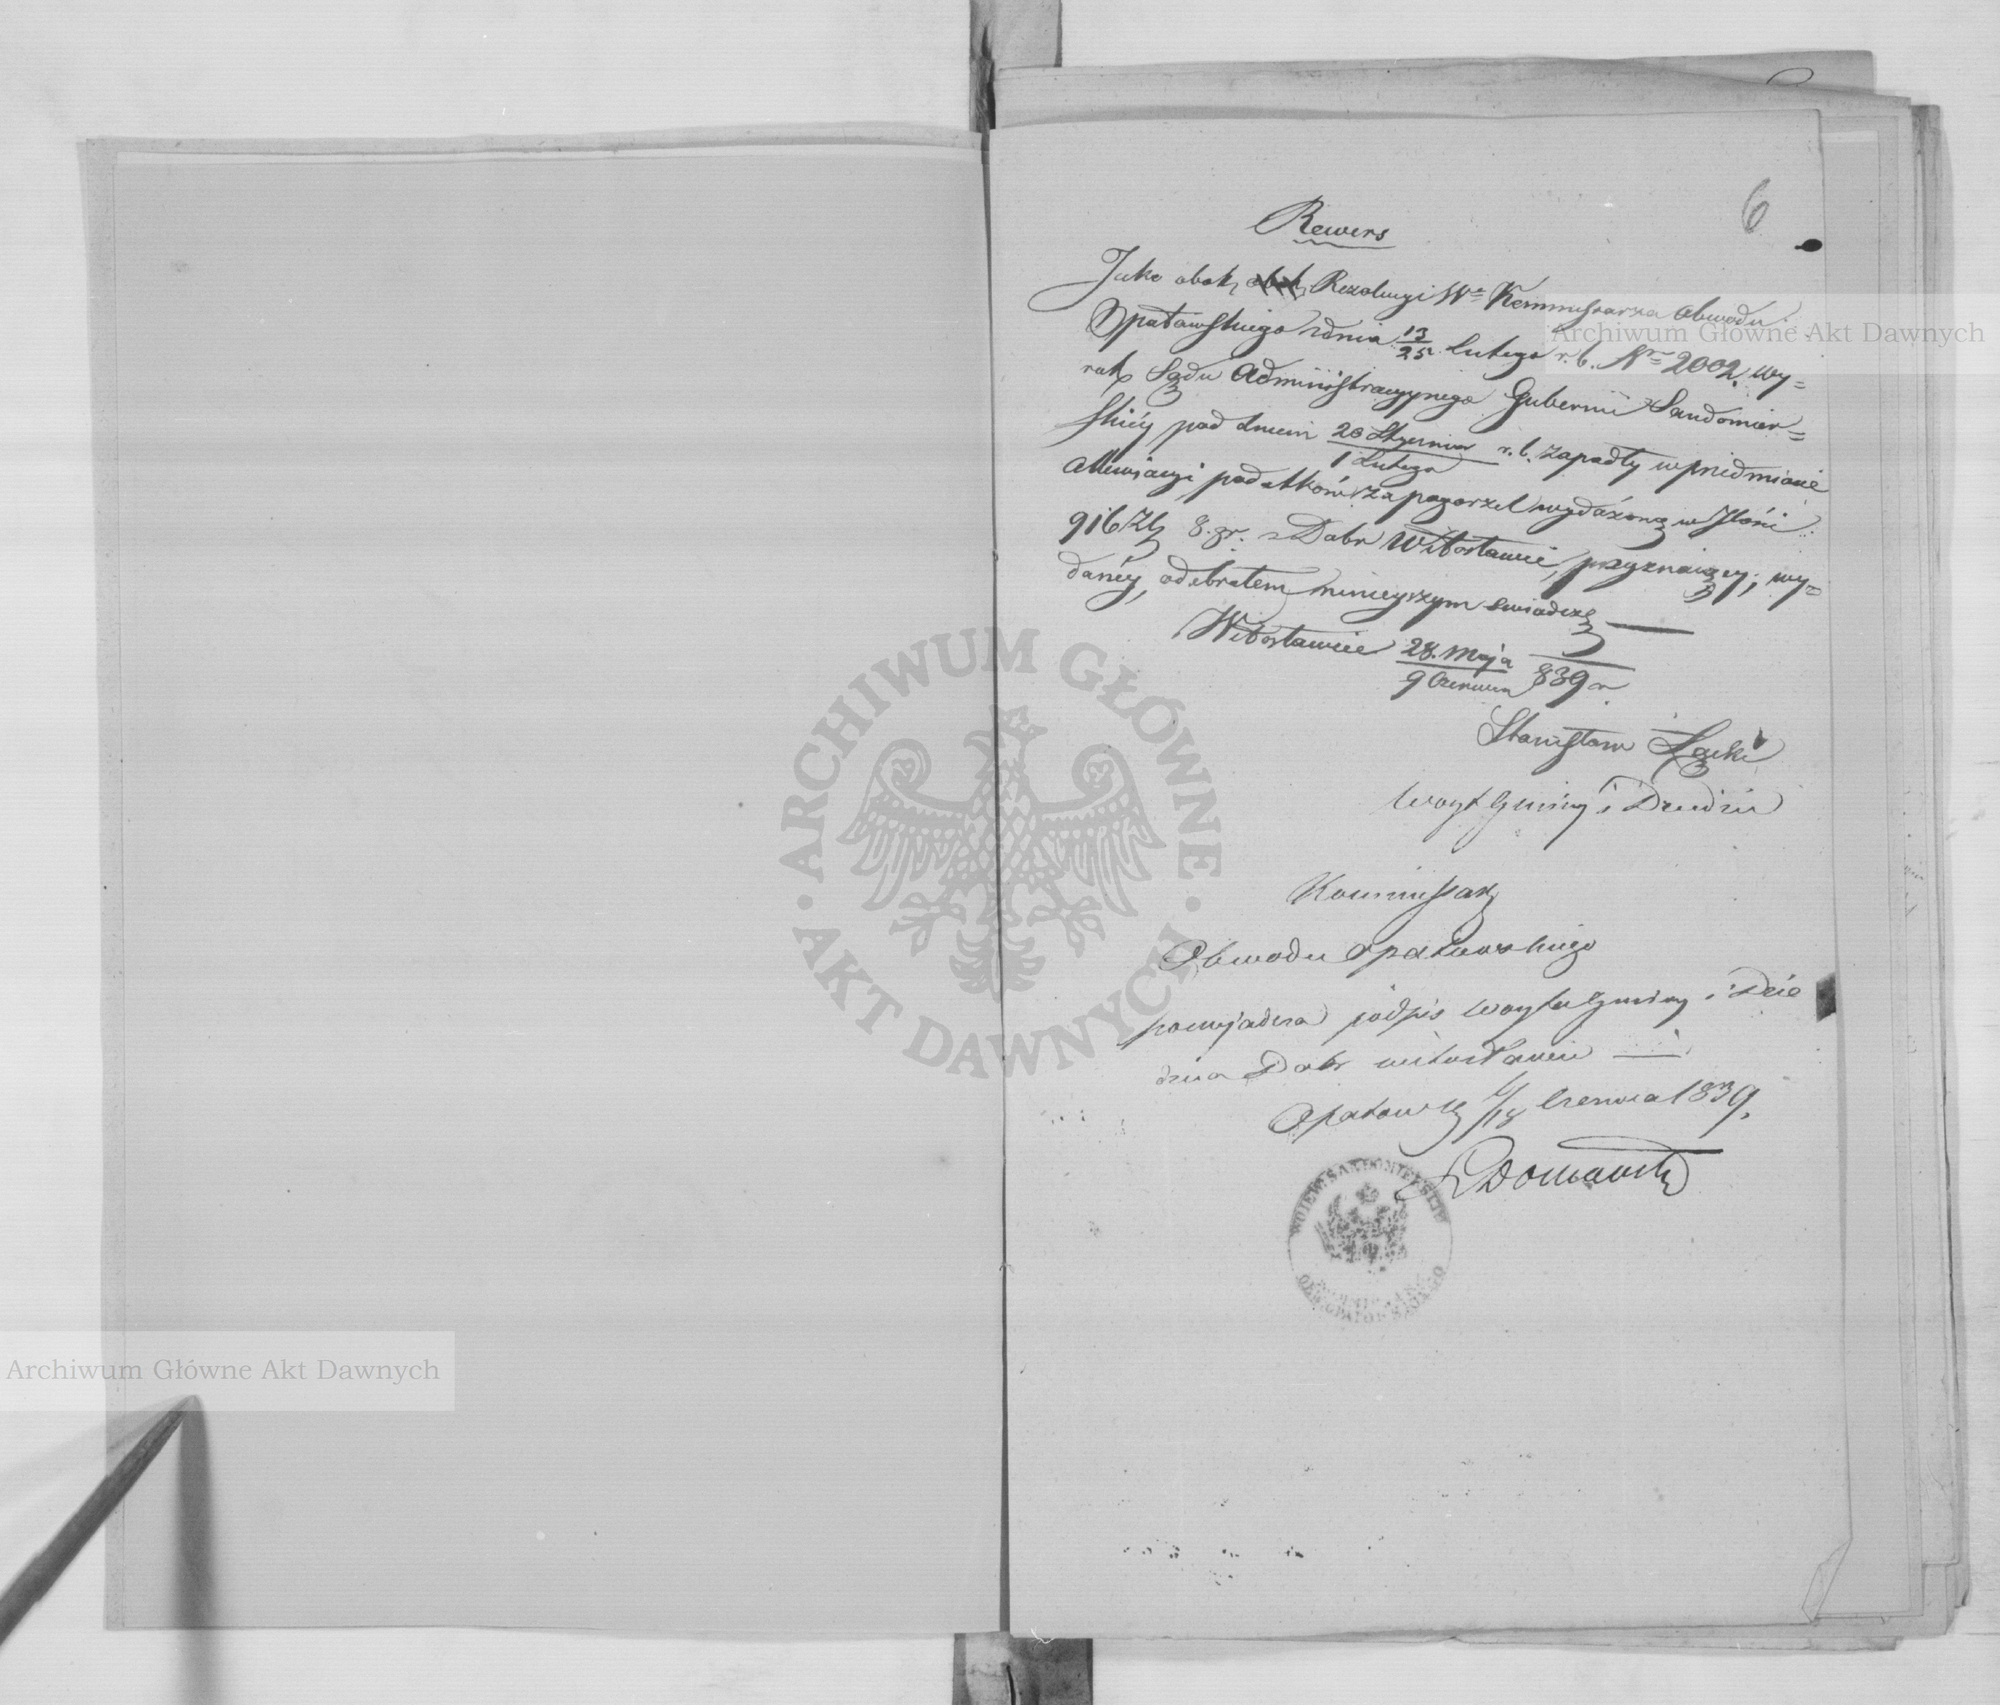 6
Rewers
Jako obok obok Rezolucyi Wo Kommissarza Obwodu
Opatowskiego z dnia 13/25 Lutego r. b. Nro 2002. wy=
rok Sądu Administracyjnego Gubernii Sandomier=
skiéy pod dniem 20 Stycznia / 1 Lutego r. b. zapadły w przedmiocie
allewiacyi podatków za pogorzel wydarzoną w Ilości
916 Zł 8. gr. z Dobr Witosławic, przyznaiący; wy=
danéy, odebrałem ninieyszym swiadczę
Witosławice 28. Maja / 9 Czerwca 839 r
Stanisław Łącki
Woyt Gminy i Dziedzic
Kommissarz
Obwodu Opatowskiego
poswjadcza podpis Woyta Gminy i Dzie
dzica Dobr Witosławic
Opatow d 6/18 Czerwca 1839.
Domański
WOJEW: SANDOMIERSKIE
OBW: OPATOWSKIEGO
ARCHIWUM GŁÓWNE AKT DAWNYCH
Archiwum Główne Akt Dawnych
Archiwum Główne Akt Dawnych